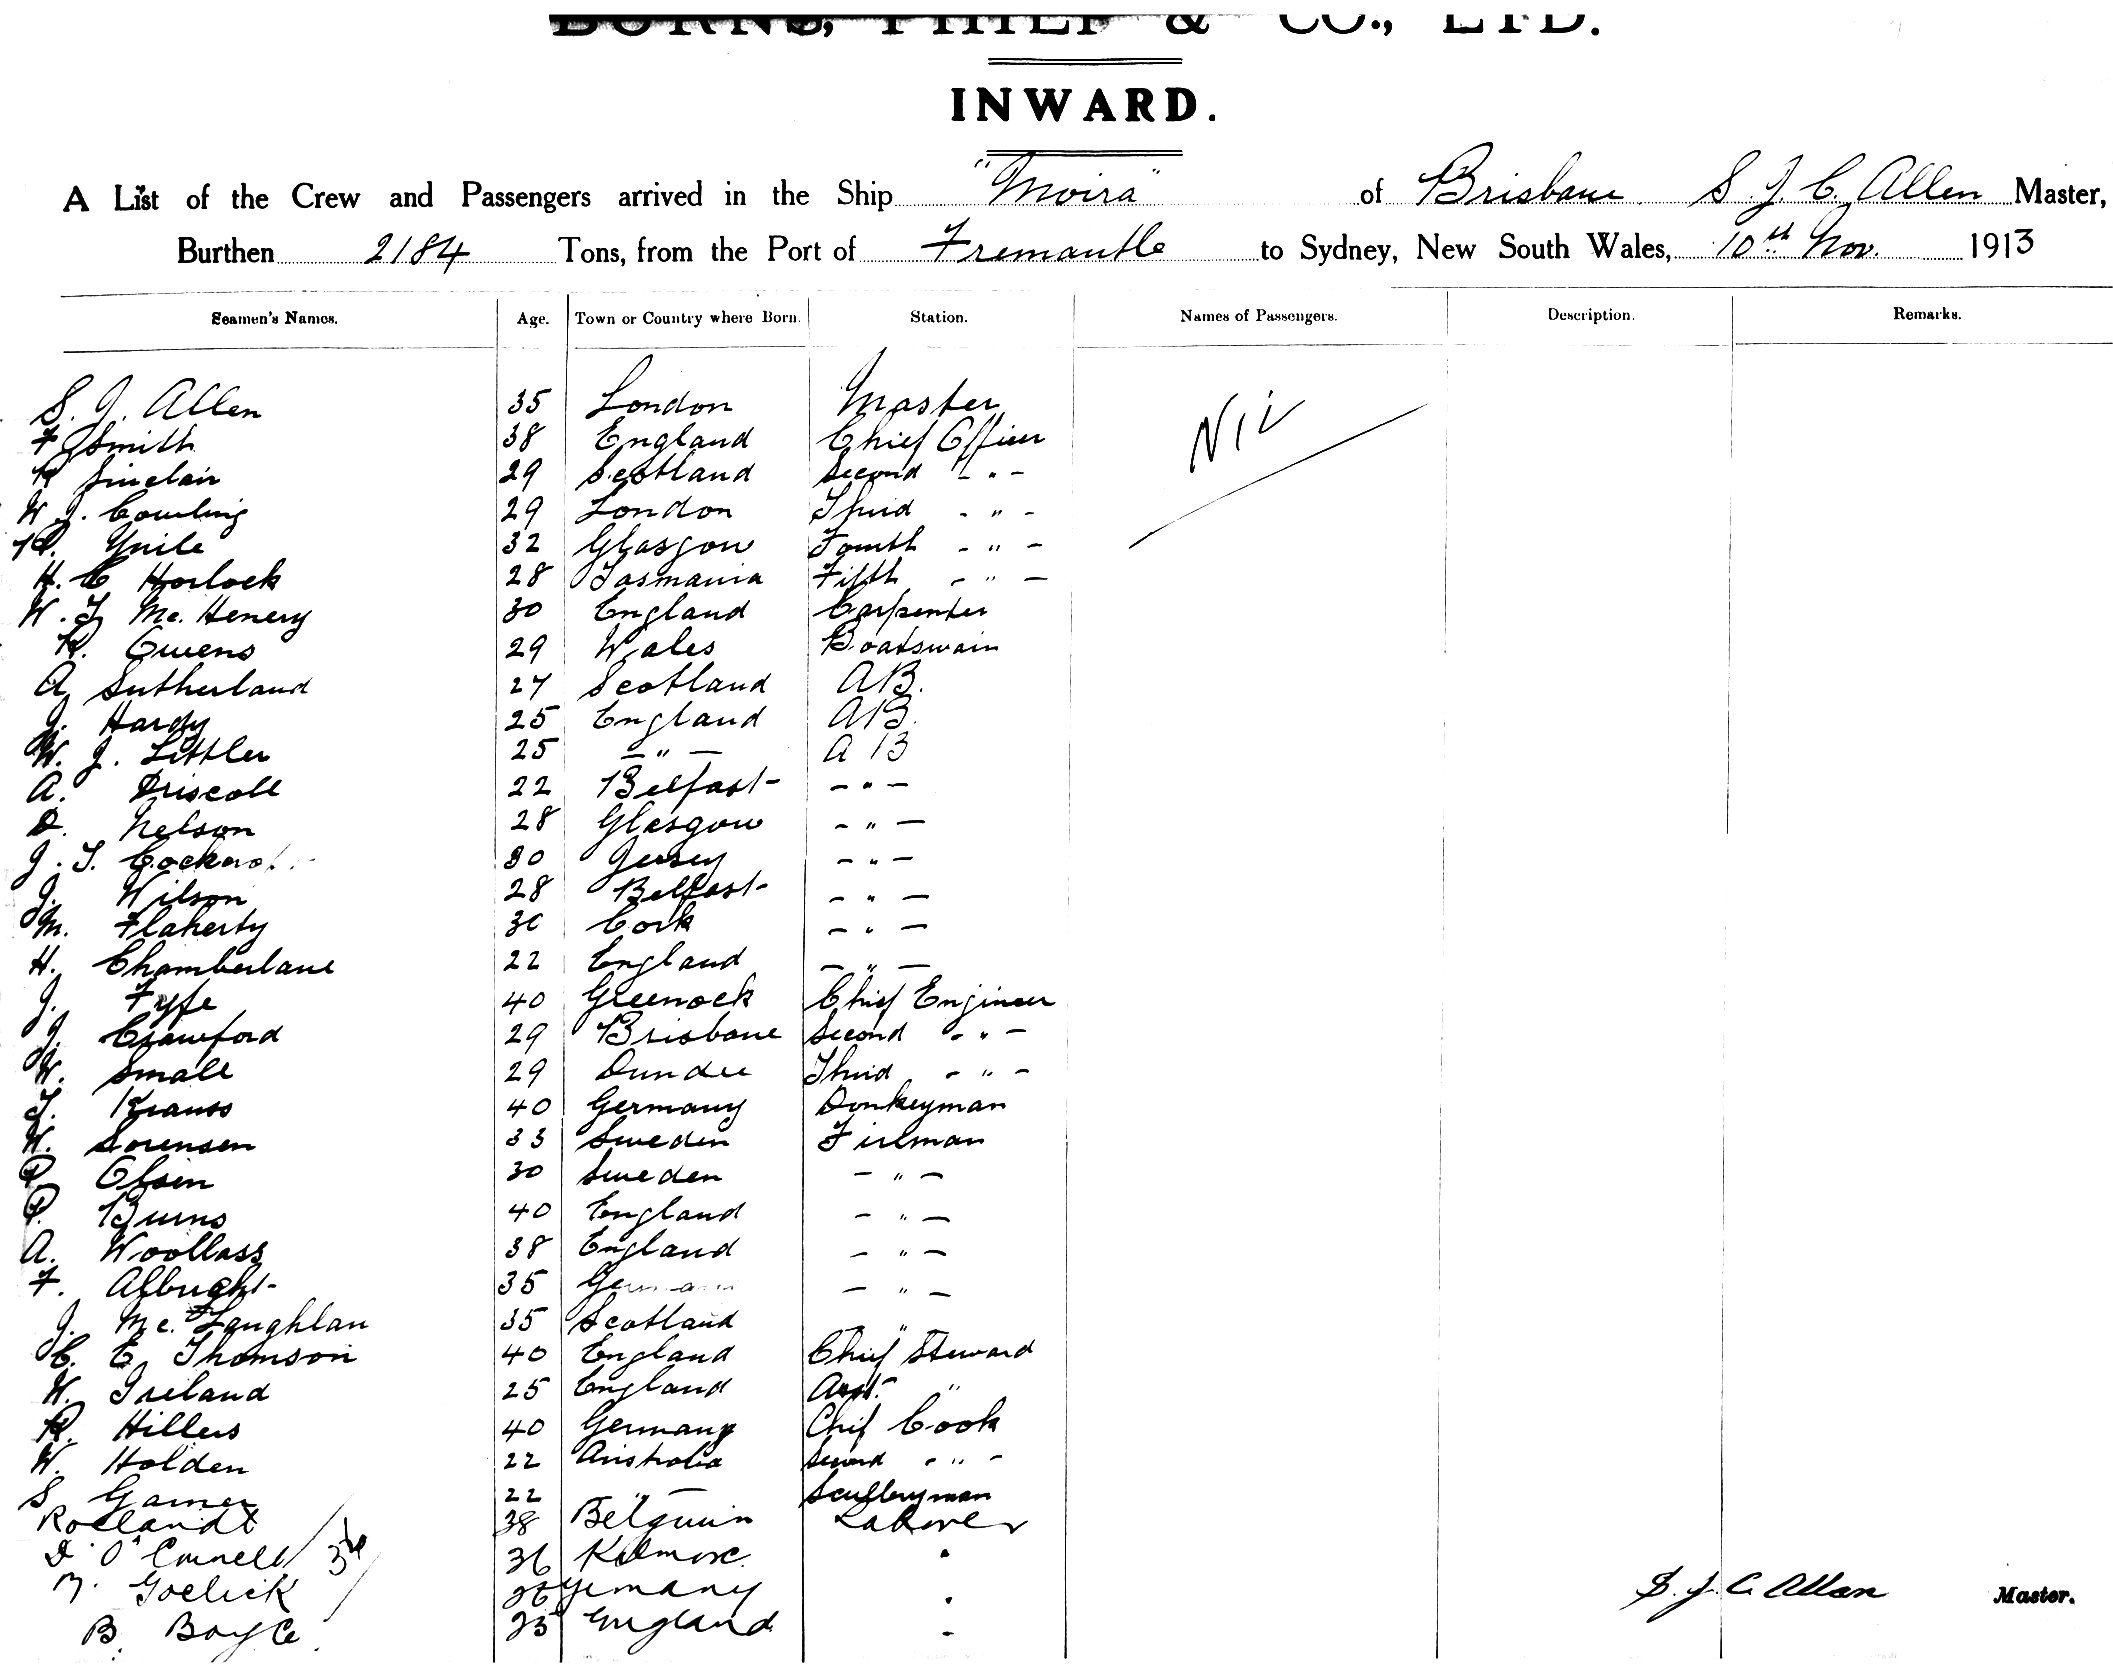 BURNS, PHILP & CO., LTD.
INWARD.
A List of the Crew and Passengers arrived in the Ship "Moira" of Brisbane S J. C. Allen Master,
Burthen 2184 Tons, from the Port of Fremantle to Sydney, New South Wales, 10th Nov. 1913
Seamen's Names. Age. Town or Country where Born. Station. Names of Passengers. Description. Remarks.
S. J. Allen 35 London Master Nil
F Smith 38 England Chief Officer
R Sinclair 29 Scotland Second - " -
W J. Cowling 29 London Third - " -
Yuile 32 Glasgow Fourth - " -
H. C Horlock 28 Tasmania Fifth - " -
W. J Mc. Henery 30 England Carpenter
R. Owens 29 Wales Boatswain
A Sutherland 27 Scotland AB.
J. Hardy 25 England AB.
W. J. Littler 25 - " - A B
A. Driscoll 22 Belfast - " -
D. Nelson 28 Glasgow - " -
J. T. 30 Jersey - " -
J. Wilson 28 Belfast - " -
M. Flaherty 30 Cork - " -
H. Chamberlane 22 England - " -
J. Fyfe 40 Greenock Chief Engineer
J. Crawford 29 Brisbane Second - " -
W. Small 29 Dundee Third - " -
T. Krauss 40 Germany Donkeyman
W. Sorensen 33 Sweden Fireman
P Olsen 30 Sweden - " -
P. Burns 40 England - " -
A. Woollass 38 England - " -
F. Albright 35 - " -
J. Mc. Laughlan 35 Scotland - " -
C. E. Thomson 40 England Chief Steward
W. Ireland 25 England Asst. "
R. Hillers 40 Germany Chif Cook
W. Holden 22 Australia Second - " -
S Garner 22 " - Sculleryman
Roelandt 38 Belguim
D O'Connell 36 Kilmore "
Goelick 26 Gemany "
B. Boyle 25 England "
S. J. C. Allan Master.